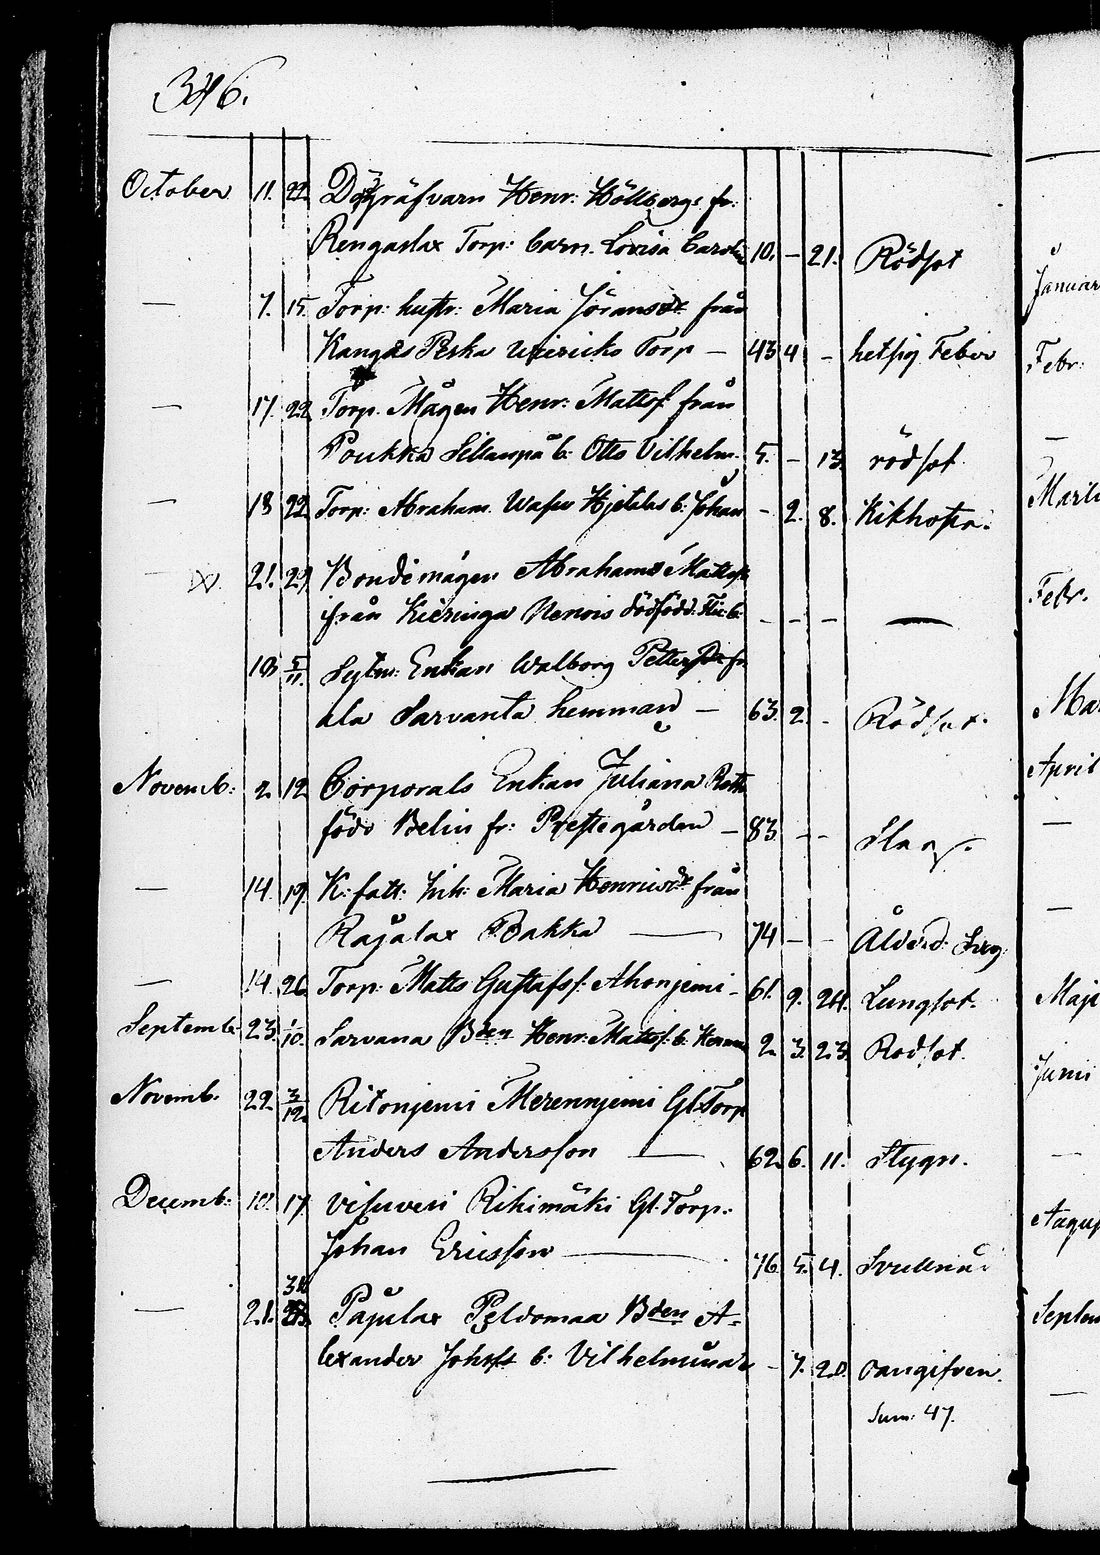 346.
October 11. 22. Dödgräfvarn Henr: Hollbergs fr:
Rengaslax Torp: barn. Lovisa Carolin 10. - 21. Rödsot
— 7. 15. Torp: hustr: Maria Jöransdr från
Kangas Perka Torp — 43 4 - hetsig Feber
— 17. 22. Torp. Mågen Henr: Mattss. från
Poukka Sillanpä b: Otto Vilhelm. 5. - 13. rödsot
— 18 22. Torp: Abraham b: Johan - 2. 8. Kikhosta.
— 21. 29. Bondemågen Abrahams Mattss.
från Kieringa Nenois dödfödd. - - - —
10. 5/11. Sytn: Enkan Walborg Pettersdr fr
ala Sarvanta hemman — 63. 2. - Rödsot.
Novemb: 2. 12 Corporals Enkan Juliana
född Belin fr: Prestegården — 83. - - Slag.
— 14. 19. K: fatt: Inh: Maria Henricsdr från
Rajalax Bakka — 74 - - Ålderd:
— 14. 26. Torp: Matts Gustafss: Ahonjemi - 61. 9. 24. Lungsot.
Septemb. 23. 1/10. Sarvana Bden Henr: Mattss. b: Herman 2. 3. 23. Rodsot.
Novemb. 22. 3/12. Ritonjemi Merennjemi Gl: Torp
Anders Andersson — 62. 6. 11. Stygn.
Decemb: 10. 17. Visuvesi Rihimäki Gl. Torp.
Johan Ericsson — 76. 5. 4. Svullnad
— 21. 31. Pajulax Peldomaa Bden A-
lexander Johss b: Vilhelmina - 7. 20. oangifven.
Sum: 47.
Januar
Febr:
—
Marti
Febr.
Mar
April
—
—
Maji
Junii
—
August
Septem
—